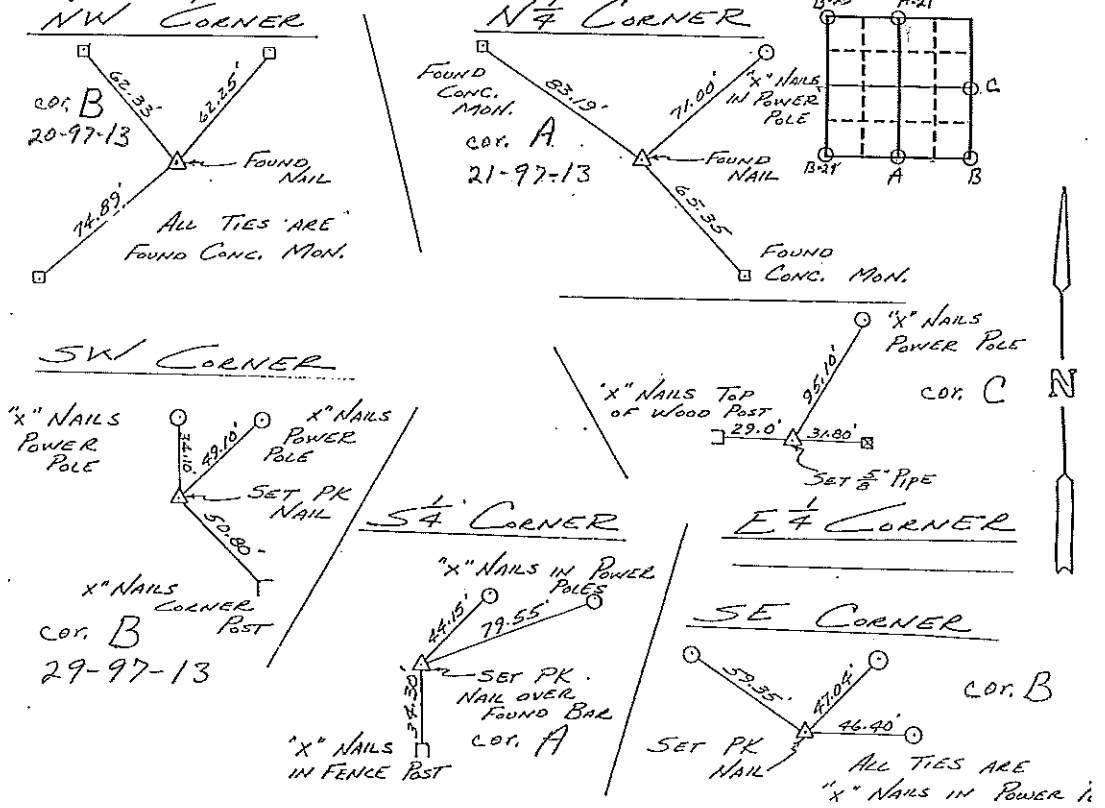 NW CORNER
62.33'
62.25'
cor. B
20-97-13
FOUND
NAIL
74.89'
ALL TIES ARE
FOUND CONC. MON.
N 1/4 CORNER
FOUND
CONC.
MON.
83.19'
71.00'
"X" NAILS
IN POWER
POLE
cor. A
21-97-13
FOUND
NAIL
65.35'
FOUND
CONC. MON.
A-21
C
B-29
A
B
SW CORNER
"X" NAILS
POWER
POLE
34.10'
49.10'
"X" NAILS
POWER
POLE
SET PK
NAIL
50.80'
"X" NAILS
CORNER
POST
cor. B
29-97-13
"X" NAILS
POWER POLE
95.10'
cor. C
"X" NAILS TOP
OF WOOD POST
29.0'
31.80'
SET 5/8" PIPE
E 1/4 CORNER
N
S 1/4 CORNER
"X" NAILS IN POWER
POLES
44.15'
79.55'
SET PK
NAIL OVER
FOUND BAR
34.30'
cor. A
"X" NAILS
IN FENCE POST
SE CORNER
59.35'
47.04'
46.40'
cor. B
SET PK
NAIL
ALL TIES ARE
"X" NAILS IN POWER